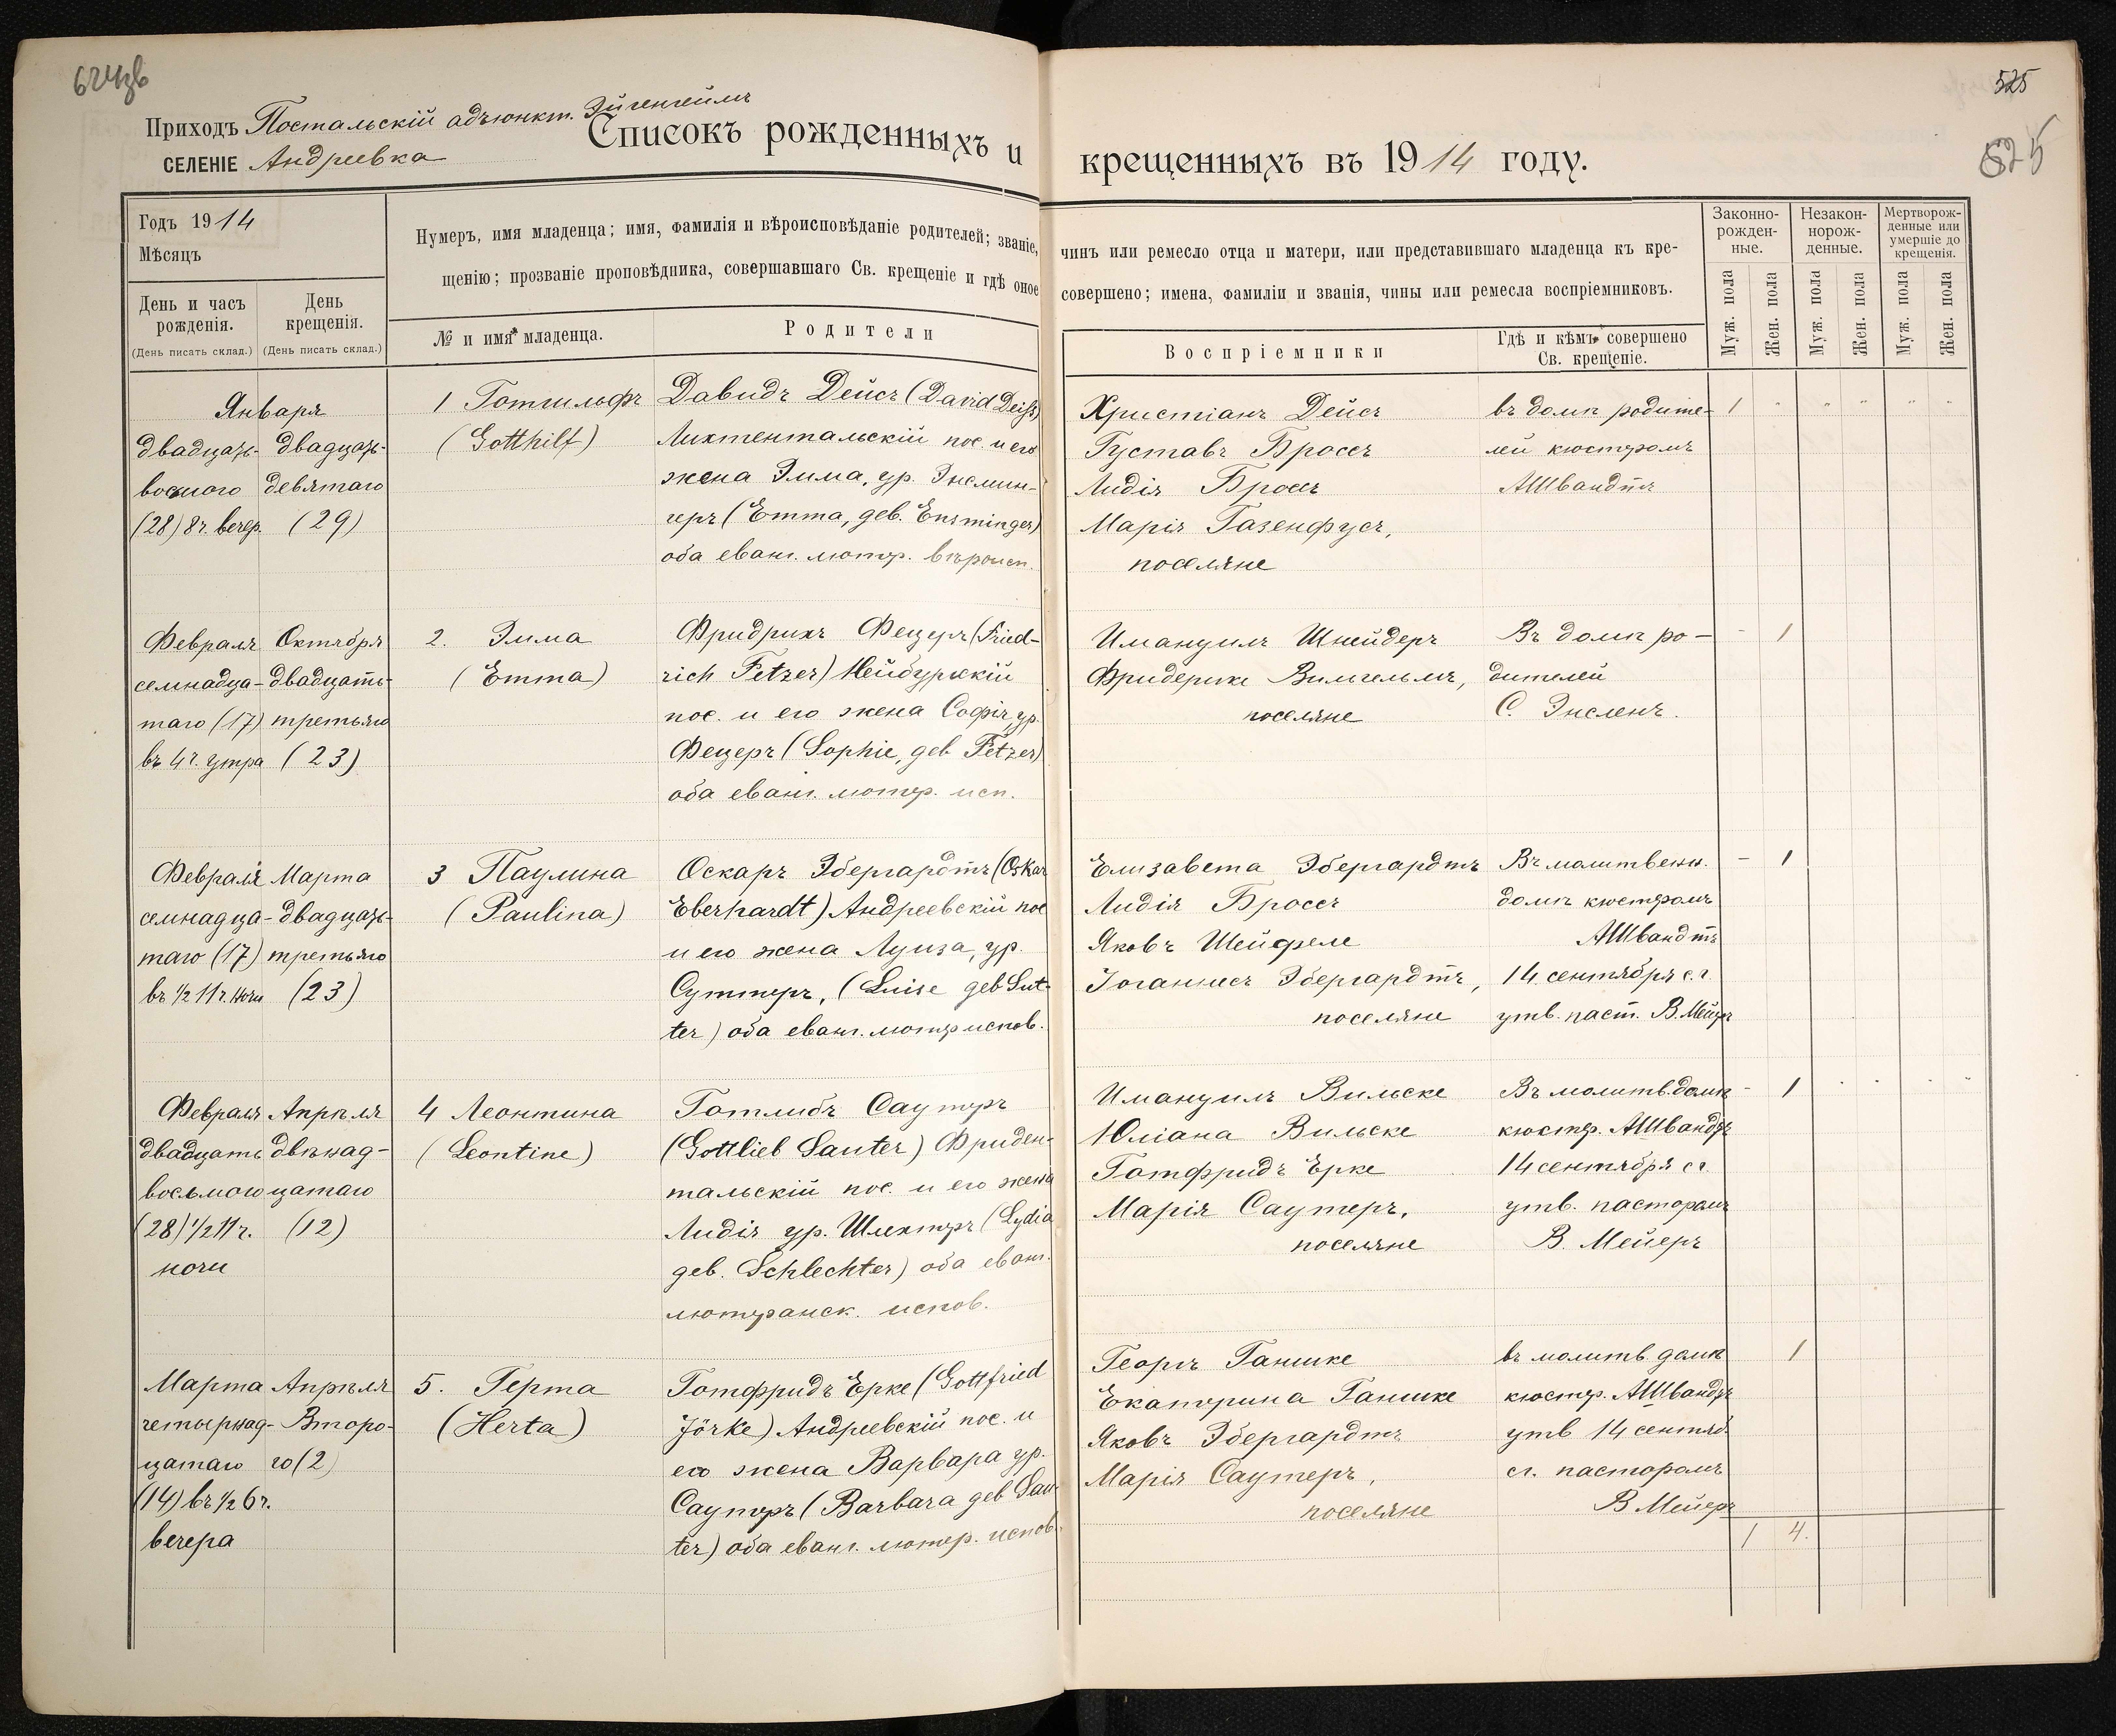 525
Приходъ Постальскій адъюнкт. Эйгенгеймъ
СЕЛЕНІЕ Андреевка
Списокъ рожденныхъ и крещенныхъ въ 1914 году.
525
Годъ 1914
Мѣсяцъ
День и часъ рожденія.
(День писать склад.)
День крещенія.
(День писать склад.)
Нумеръ, имя младенца; имя, фамилія и вѣроисповѣданіе родителей; званіе, чинъ или ремесло отца и матери, или представившаго младенца къ кре-
щенію; прозваніе проповѣдника, совершавшаго Св. крещеніе и гдѣ оное совершено; имена, фамиліи и званія, чины или ремесла воспріемниковъ.
№ и имя младенца.
Родители
Воспріемники
Гдѣ и кѣмъ совершено
Св. крещеніе.
Законно-
рожден-
ные.
Незакон-
норож-
денные.
Мертворож-
денные или
умершіе до
крещенія.
Муж. пола
Жен. пола
Муж. пола
Жен. пола
Муж. пола
Жен. пола
Января
двадцать- двадцать-
восмого девятаго
(28) 8ч. вечер. (29)
1 Готгильфъ
(Gotthilf)
Давидъ Дейсъ (David Deiß)
Лихтентальскій пос. и его
жена Эмма, ур. Энсмин-
геръ (Emma, geb. Ensminger)
оба еванг. лютер. вѣроисп.
Христіанъ Дейсъ
Густавъ Броссъ
Лидія Броссъ
Марія Газенфусъ,
поселяне
въ домѣ родите-
лей кюстеромъ
АШвандтъ
1
Февраля Октября
семнадца- двадцать-
таго (17) третьяго
въ 4ч. утра (23)
2. Эмма
(Emma)
Фридрихъ Фецеръ (Fried-
rich Fetzer) Нейбургскій
пос. и его жена Софія ур.
Фецеръ (Sophie, geb Fetzer)
оба еванг. лютер. исп.
Имануилъ Шнейдеръ
Фридерике Вильгельмъ,
поселяне
Въ домѣ ро-
дителей
С. Энсленъ.
- 1
Февраля Марта
семнадца- двадцать-
таго (17) третьяго
въ ½ 11ч. ночи (23)
3 Паулина
(Paulina)
Оскаръ Эбергардтъ (Oskar
Eberhardt) Андреевскій пос
и его жена Луиза, ур.
Суттеръ, (Luise geb Sut-
ter) оба еванг. лютер испов.
Елизавета Эбергардтъ
Лидія Броссъ
Яковъ Шейфеле
Іоганнесъ Эбергардтъ,
поселяне
Въ молитвенн.
домѣ кюстеромъ
АШвандтъ
14 сентября с.г.
утв. паст. В. Мейеръ
- 1
Февраля Апрѣля
двадцать двѣнад-
восьмого цатаго
(28) ½ 11ч. (12)
ночи
4 Леонтина
(Leontine)
Готлибъ Саутеръ
(Gottlieb Sauter) Фриден-
тальскій пос. и его жена
Лидія ур. Шлехтеръ (Lydia
geb. Schlechter) оба еванг.
лютеранск. испов.
Имануилъ Вильске
Юліана Вильске
Готфридъ Ерке
Марія Саутеръ,
поселяне
Въ молитв. домѣ
кюстер. АШвандтъ
14 сентября с г.
утв. пасторомъ
В. Мейеръ
- 1
Марта Апрѣля
четырнад- Второ-
цатаго го (2)
(14) въ ½ 6ч.
вечера
5. Герта
(Herta)
Готфридъ Ерке (Gottfried
Jörke) Андреевскій пос. и
его жена Варвара ур.
Саутеръ (Barbara geb Sau-
ter) оба еванг. лютер. испов.
Георгъ Ганшке
Екатерина Ганшке
Яковъ Эбергардтъ
Марія Саутеръ,
поселяне
въ молитв. домѣ
кюстер. АШвандтъ
утв 14 сентяб.
сг. пасторомъ
В Мейеръ
1
1 4.